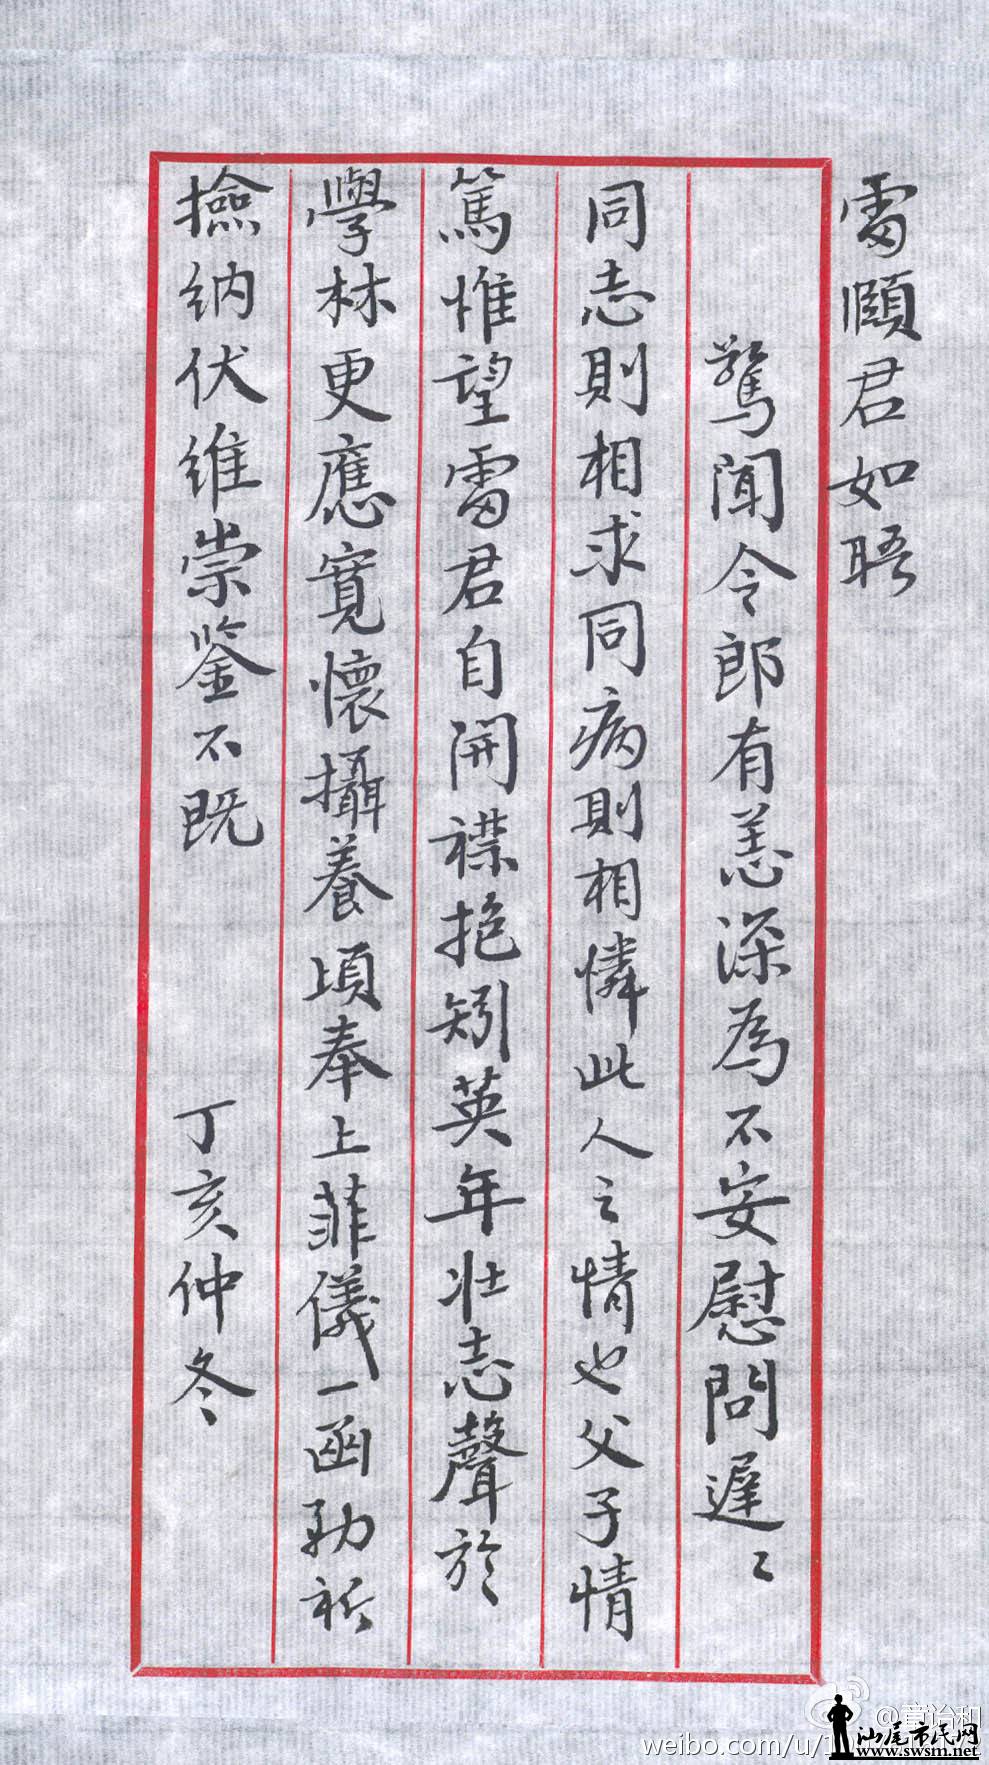 雷頤君如晤
驚聞令郎有恙深為不安慰問遲〻
同志則相求同病則相憐此人之情也父子情
篤惟望雷君自開襟抱矧英年壯志聲於
學林更應寬懷攝養頃奉上菲儀一函勛祈
撿纳伏维崇鉴不既
丁亥仲冬
@章诒和
weibo.com/u/1
汕尾市民网
www.swsm.net